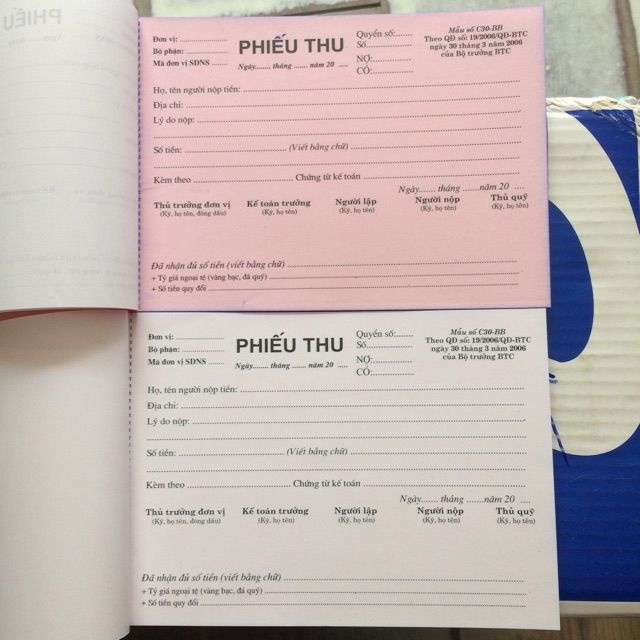 PHIẾU
Đơn vị: ....................
Bộ phận: ..................
Mã đơn vị SDNS .......
PHIẾU THU
Ngày....... tháng ....... năm 20 ....
Quyển số:......
Số..................
NỢ:................
CÓ:................
Mẫu số C30-BB
Theo QĐ số: 19/2006/QĐ-BTC
ngày 30 tháng 3 năm 2006
của Bộ trưởng BTC
Họ, tên người nộp tiền: ....................
Địa chỉ: ....................
Lý do nộp: ....................
Số tiền: .................... (Viết bằng chữ) ....................
Kèm theo .................... Chứng từ kế toán ....................
Ngày....... tháng .......năm 20 ....
Thủ trưởng đơn vị Kế toán trưởng Người lập Người nộp Thủ quỹ
(Ký, họ tên, đóng dấu) (Ký, họ tên) (Ký, họ tên) (Ký, họ tên) (Ký, họ tên)
Đã nhận đủ số tiền (viết bằng chữ) ....................
+ Tỷ giá ngoại tệ (vàng bạc, đá quý) ....................
+ Số tiền quy đổi ....................
Đơn vị: ....................
Bộ phận: ..................
Mã đơn vị SDNS .......
PHIẾU THU
Ngày....... tháng ....... năm 20 ....
Quyển số:......
Số..................
NỢ:................
CÓ:................
Mẫu số C30-BB
Theo QĐ số: 19/2006/QĐ-BTC
ngày 30 tháng 3 năm 2006
của Bộ trưởng BTC
Họ, tên người nộp tiền: ....................
Địa chỉ: ....................
Lý do nộp: ....................
Số tiền: .................... (Viết bằng chữ) ....................
Kèm theo .................... Chứng từ kế toán ....................
Ngày....... tháng .......năm 20 ....
Thủ trưởng đơn vị Kế toán trưởng Người lập Người nộp Thủ quỹ
(Ký, họ tên, đóng dấu) (Ký, họ tên) (Ký, họ tên) (Ký, họ tên) (Ký, họ tên)
Đã nhận đủ số tiền (viết bằng chữ) ....................
+ Tỷ giá ngoại tệ (vàng bạc, đá quý) ....................
+ Số tiền quy đổi ....................